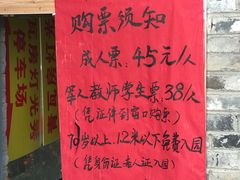 购票须知
成人票:45元/人
军人教师学生票:38/人
(凭证件到窗口购票)
70岁以上,1.2米以下免费入园
(凭身份证老人证入园)
停车场